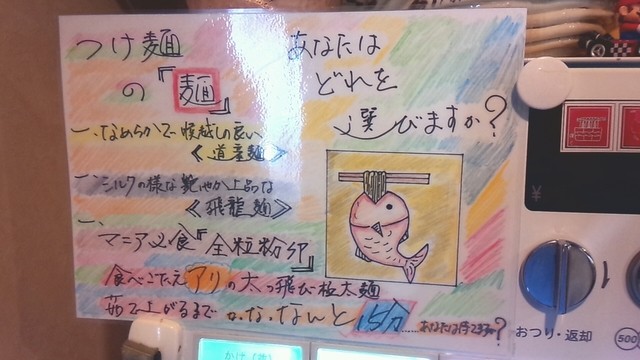 つけ麺
の『麺』
あなたは
どれを
選びますか?
一、なめらかで喉越しの良い
《道産麺》
一、シルクの様な艶やか上品な
《飛龍麺》
一、
マニア必食『全粒粉
食べごたえアリの太っ飛び極太麺
茹で上がるまでか、な、なんと15分……あなたは待てますか?
おつり・返却
500
¥